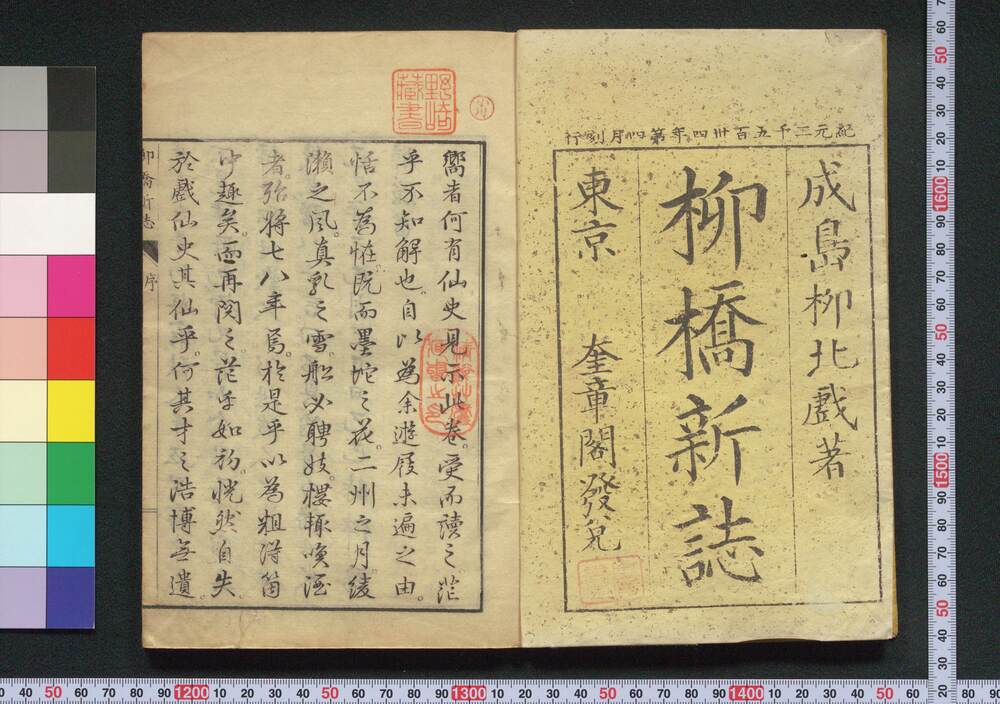 紀元二千五百卅四年第四月刻行
成島柳北戲著
柳橋新誌
東京 奎章閣發兌
野崎藏書
嚮者何有仙史見示此卷。受而讀之茫
乎不知解也。自以為余遊屐未遍之由。
恬不為怪。既而墨坨之花。二州之月綾
瀨之風。真乳之雪。船必聘妓。樓輙喚酒
者。殆將七八年焉。於是乎以為粗得箇
中趣矣。而再閱之茫乎如初。恍然自失。
於戲仙史其仙乎。何其才之浩博無遺。
柳橋新志
序
0 40 50 60 70 80 90 1200 10 20 30 40 50 60 70 80 90 1300 10 20 30 40 50 60 70 80 90 1400 10 20 30 40 50 60
80 90